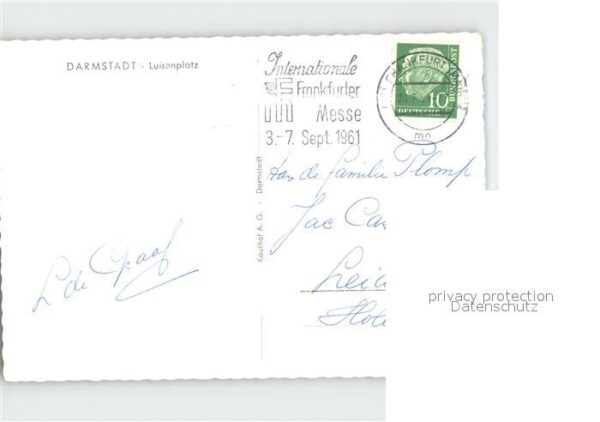 DARMSTADT - Luisenplatz
Internationale
Frankfurter
Messe
3.-7. Sept. 1961
FRANKFURT
10
DEUTSCHE
BUNDESPOST
mo
Kaufhof A. G. - Darmstadt
Aan de familie Plomp
Jac Ca
Leid
L de Graaf
privacy protection
Datenschutz